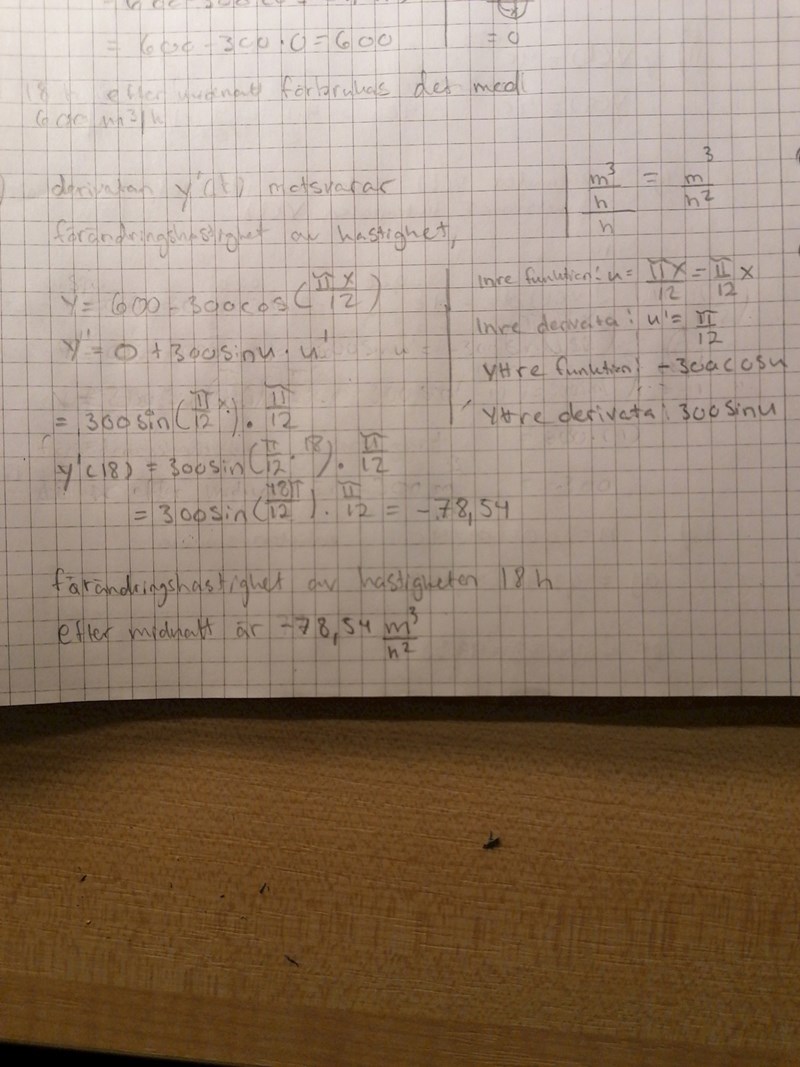 = 600 - 300 · 0 = 600
= 0
18 efter midnatt förbrukas det med
600 m³/h
derivatan y'(t) motsvarar
förändringshastighet av hastighet,
m³/h/h = m³/h²
y = 600 - 300cos(πx/12)
y' = 0 + 300sinu · u'
= 300sin(π/12 x) · π/12
y'(18) = 300sin(π/12 · 18) · π/12
= 300sin(18π/12) · π/12 = -78,54
Inre funktion: u = πx/12 = π/12 x
Inre derivata: u' = π/12
Yttre funktion: -300cosu
Yttre derivata: 300sinu
förändringshastighet av hastigheten 18 h
efter midnatt är -78,54 m³/h²